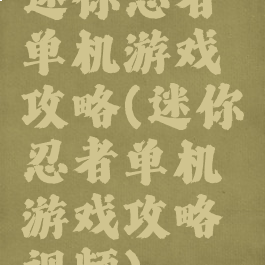 迷你忍者
单机游戏
攻略(迷你
忍者单机
游戏攻略
视频)